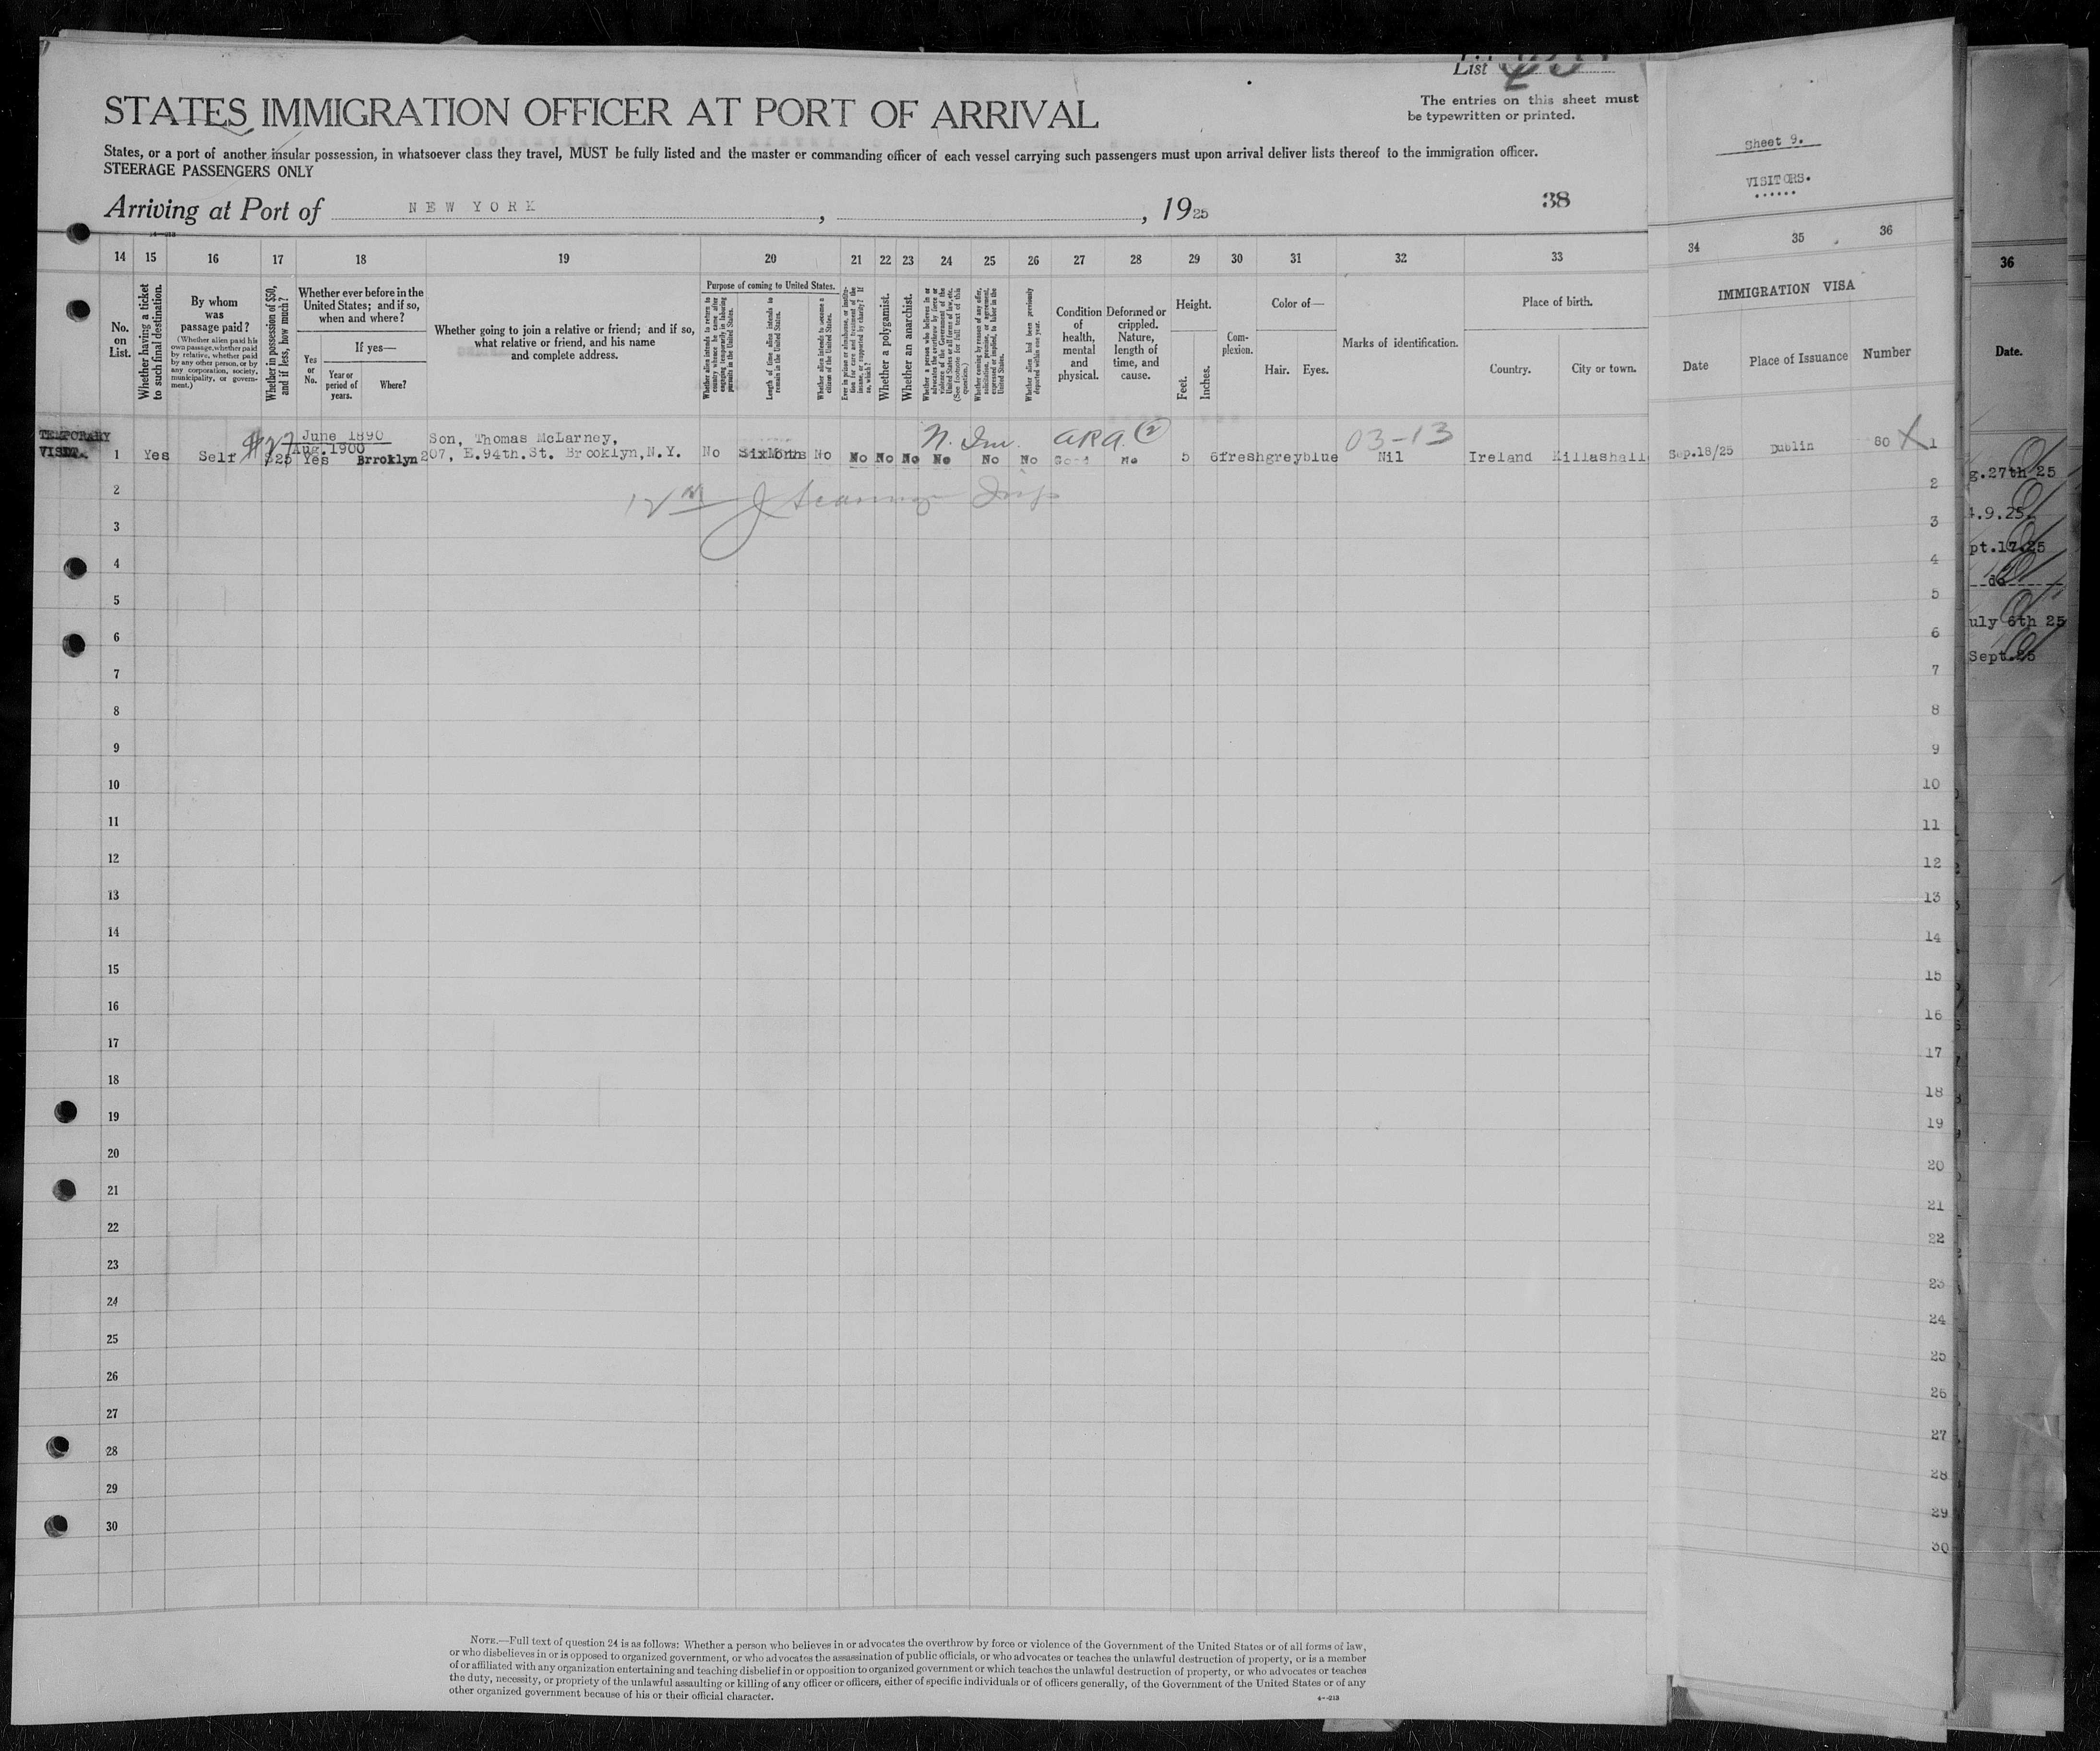 List
STATES IMMIGRATION OFFICER AT PORT OF ARRIVAL
The entries on this sheet must
be typewritten or printed.
States, or a port of another insular possession, in whatsoever class they travel, MUST be fully listed and the master or commanding officer of each vessel carrying such passengers must upon arrival deliver lists thereof to the immigration officer.
STEERAGE PASSENGERS ONLY
Arriving at Port of NEW YORK, , 1925
38
Sheet 9.
VISITORS.
14 15 16 17 18 19 20 21 22 23 24 25 26 27 28 29 30 31 32 33 34 35 36
No. on List.
Whether having a ticket to such final destination.
By whom was passage paid?
(Whether alien paid his own passage, whether paid by relative, whether paid by any other person, or by any corporation, society, municipality, or government.)
Whether in possession of $50, and if less, how much?
Whether ever before in the United States; and if so, when and where?
Yes or No.
If yes—
Year or period of years.
Where?
Whether going to join a relative or friend; and if so, what relative or friend, and his name and complete address.
Purpose of coming to United States.
Whether alien intends to return to country whence he came after engaging temporarily in laboring pursuits in the United States.
Length of time alien intends to remain in the United States.
Whether alien intends to become a citizen of the United States.
Ever in prison or almshouse, or institution for care and treatment of the insane, or supported by charity? If so, which?
Whether a polygamist.
Whether an anarchist.
Whether a person who believes in or advocates the overthrow by force or violence of the Government of the United States or all forms of law, etc. (See footnote for full text of this question.)
Whether coming by reason of any offer, solicitation, promise, or agreement, expressed or implied, to labor in the United States.
Whether alien had been previously deported within one year.
Condition of health, mental and physical.
Deformed or crippled. Nature, length of time, and cause.
Height.
Feet. Inches.
Complexion.
Color of—
Hair. Eyes.
Marks of identification.
Place of birth.
Country. City or town.
IMMIGRATION VISA
Date Place of Issuance Number
36
Date.
TEMPORARY
VISIT.
$27 June 1890 Son, Thomas McLarney, 03-13
1 Yes Self $25 Yes Aug.1900 Brroklyn 207, E.94th.St. Brooklyn,N.Y. No SixMonths No No No No No No No Good No 5 6 fresh grey blue Nil Ireland Killashall Sep.18/25 Dublin 80 X 1
2 2
3 3
4 4
5 5
6 6
7 7
8 8
9 9
10 10
11 11
12 12
13 13
14 14
15 15
16 16
17 17
18 18
19 19
20 20
21 21
22 22
23 23
24 24
25 25
26 26
27 27
28 28
29 29
30 30
g.27th 25
4.9.25
pt.17.25
do
uly 6th 25
Sept.25
NOTE.—Full text of question 24 is as follows: Whether a person who believes in or advocates the overthrow by force or violence of the Government of the United States or of all forms of law,
or who disbelieves in or is opposed to organized government, or who advocates the assassination of public officials, or who advocates or teaches the unlawful destruction of property, or is a member
of or affiliated with any organization entertaining and teaching disbelief in or opposition to organized government or which teaches the unlawful destruction of property, or who advocates or teaches
the duty, necessity, or propriety of the unlawful assaulting or killing of any officer or officers, either of specific individuals or of officers generally, of the Government of the United States or of any
other organized government because of his or their official character.